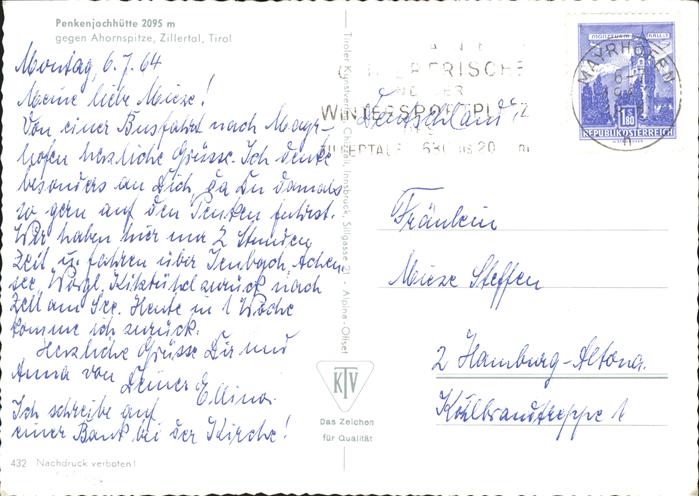 Penkenjochhütte 2095 m
gegen Ahornspitze, Zillertal, Tirol
Montag, 6.7.64
Meine liebe Miese!
Von einer Busfahrt nach Mayr-
hofen herzliche Grüsse. Ich denke
besonders an Dich, da Du damals
so gern auf den Penken fuhrst.
Wir haben hier nur 2 Stunden
Zeit u. fahren über Jenbach, Achen-
see, Wörgl, Kitzbühel zurück nach
Zell am See. Heute in 1 Woche
komme ich zurück.
Herzliche Grüsse Dir und
Anna von Deiner Ellino.
Ich schreibe auf
einer Bank bei der Kirche!
432 Nachdruck verboten!
Tiroler Kunstverlag Chizzali, Innsbruck, Sillgasse 21 - Alpina-Offset
KTV
Das Zeichen
für Qualität
WINTERSPORTPLATZ
ZILLERTAL 630
MAYRHOFEN
MÜNZTURM HALL
1.80
REPUBLIK ÖSTERREICH
Deutschland
Fräulein
Miese Steffen
2 Hamburg-Altona.
Köhlbrandtreppe 1